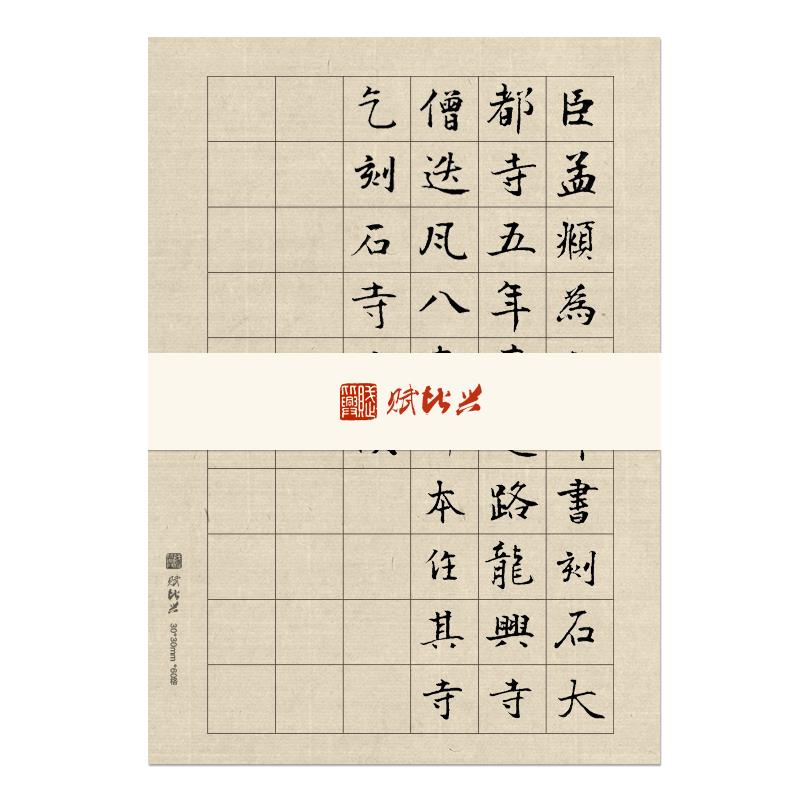 臣孟頫為書刻石大
都寺五年路龍興寺
僧迭凡八本住其寺
乞刻石寺
赋比兴
赋比兴 30*30mm *60格